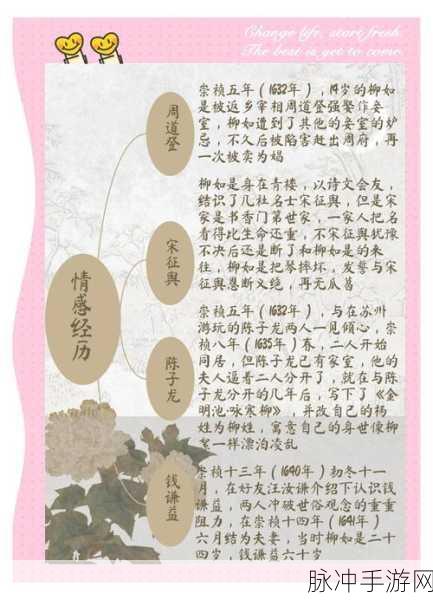 Change life, start fresh.
The best is yet to come.
情感经历
周道登
崇祯五年（1632年），14岁的柳如
是被返乡宰相周道登强娶作妾
室，柳如遭到了其他的妾室的妒
忌，不久后被陷害赶出周府，再
一次被卖为娼
宋征舆
柳如是身在青楼，以诗文会友，
结识了几社名士宋征舆，但是宋
家是书香门第世家，一家人把名
看得比生命还重，不宋征舆犹豫
不决后还是断了和柳如是的来
往，柳如是把琴摔坏，发誓与宋
征舆恩断义绝，再无瓜葛
陈子龙
崇祯五年（1632年），与在苏州
游玩的陈子龙两人一见倾心，崇
祯八年（1635年）春，二人开始
同居，但陈子龙已有家室，他的
夫人逼着二人分开了，就在与陈
子龙分开的几年后，写下了《金
明池·咏寒柳》，并改自己的杨
姓为柳姓，寓意自己的身世像柳
絮一样漂泊凌乱
钱谦益
崇祯十三年（1640年）初冬十一
月，在好友汪汝谦介绍下认识钱
谦益，两人冲破世俗观念的重重
阻力，在崇祯十四年（1641年）
六月结为夫妻，当时柳如是二十
四岁，钱谦益六十岁
脉冲手游网